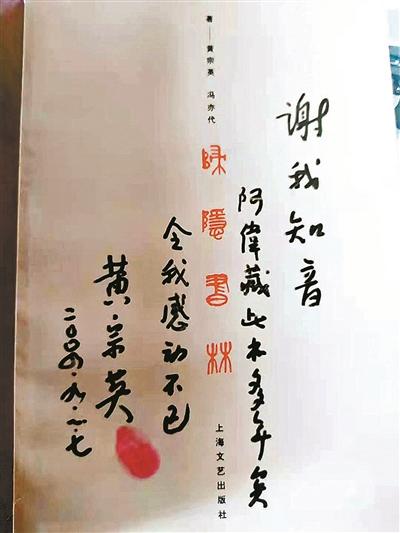 谢我知音
阿偉藏此本多年矣
著——黄宗英 冯亦代
歸隱書林
上海文艺出版社
令我感动不已
黄宗英
二〇〇